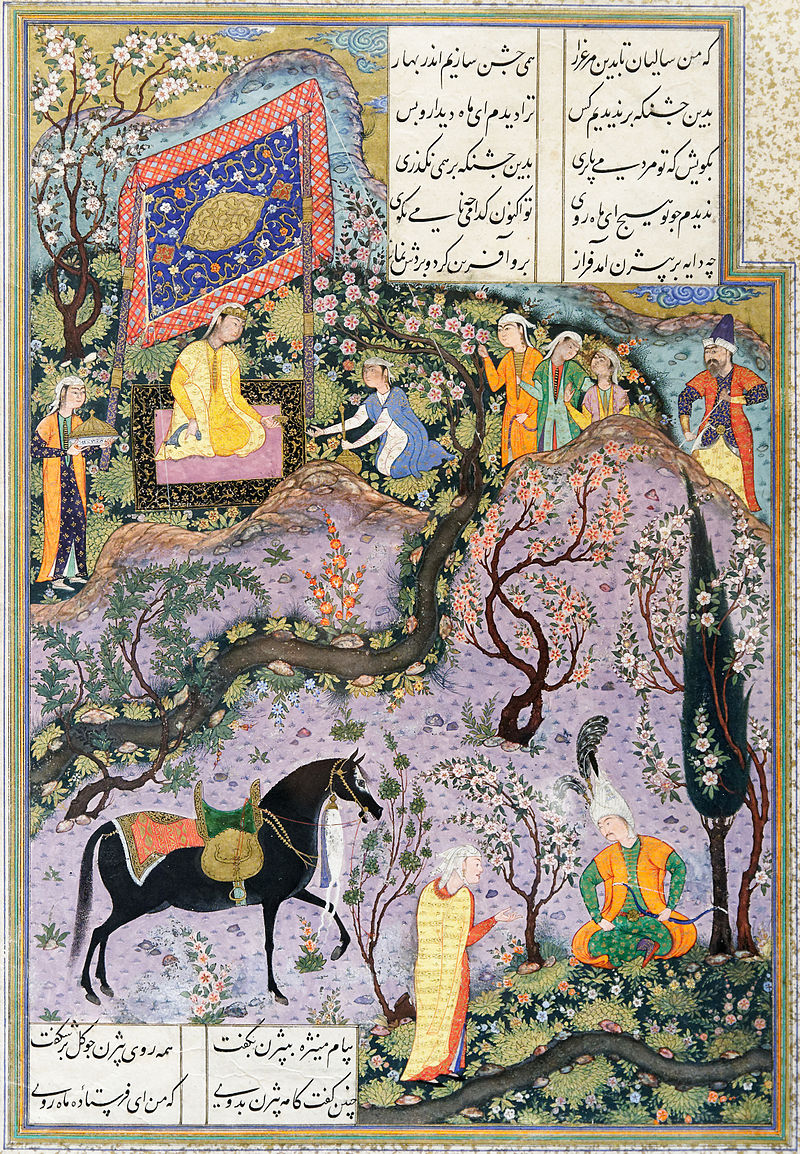 که من سالیان تا بدین مرغزار همی جشن سازیم اندر بهار
بدین جشنگه بر ندیدیم کس ترا دیدم ای ماه دیدار و بس
بگویش که تو مردمی یا پری بدین جشنگه بر همی نگذری
ندیدم چو تو هیچ ای ماه روی تو اکنون کدامی چه نامی بگوی
چه دایه بر بیژن آمد فراز برو آفرین کرد و بردش نماز
پیام منیژه به بیژن بگفت همه روی بیژن چو گل برشکفت
چنین گفت کامه بیژن بدوی که من ای فرستاده ماه روی